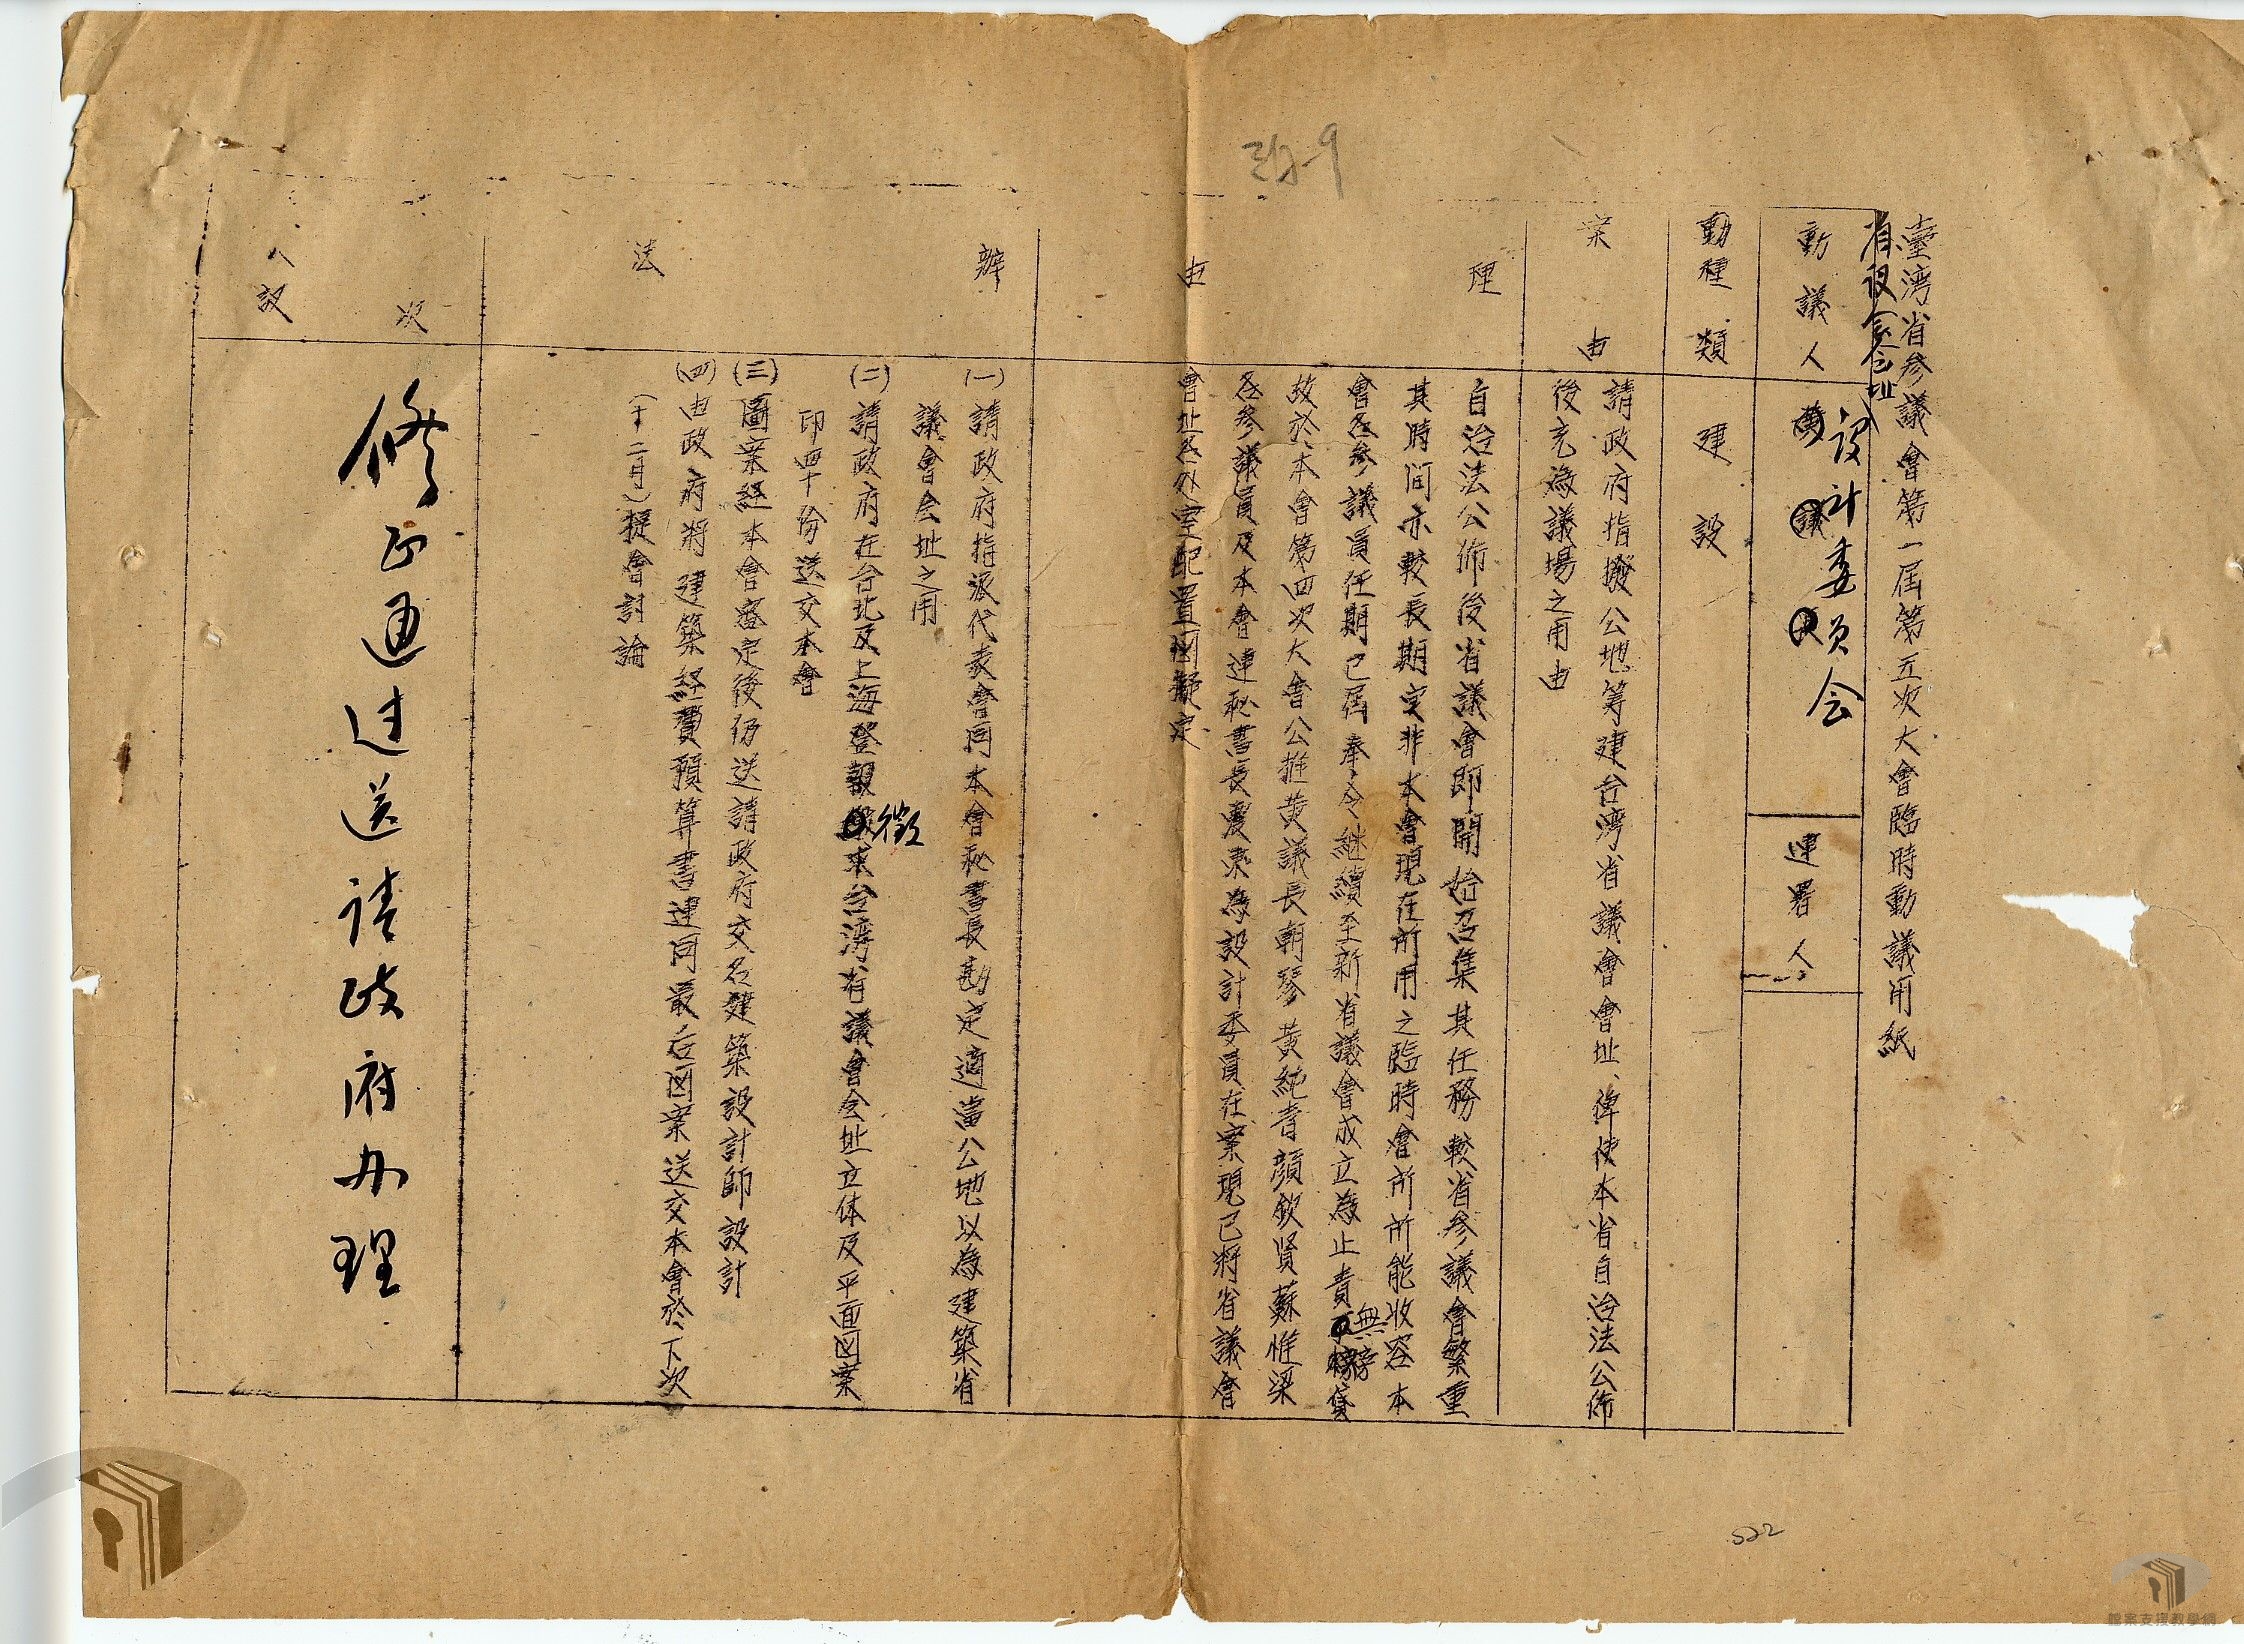 臺湾省參議會第一屆第五次大會臨時動議用紙
省議會会址
動議人
設計委員会
連署人
動種類
建設
案由
請政府指撥公地籌建台湾省議會會址、俾使本省自治法公佈
後充為議場之用由
理由
自治法公佈後省議會即開始召集其任務較省參議會繁重
其時间亦較長期定非本會現在所用之臨時會所所能收容本
會各參議員任期已屆奉令継續至新省議會成立為止責無旁貸
故於本會第四次大會公推黄議長朝琴黄純青顔欽賢蘇惟梁
各參議員及本會連秘書長震東為設計委員在案現已將省議會
會址各办室配置図擬定
辦法
(一)請政府指派代表會同本會秘書長勘定適當公地以為建築省
議會会址之用
(二)請政府在台北及上海登報徵求台湾省議會会址立体及平面図案
印四十份送交本會
(三)圖案経本會審定後仍送請政府交名建築設計師設計
(四)由政府將建築経費預算書連同最后図案送交本會於下次
(十二月)提會討論
修正通过送请政府办理
522
檔案支援教學網